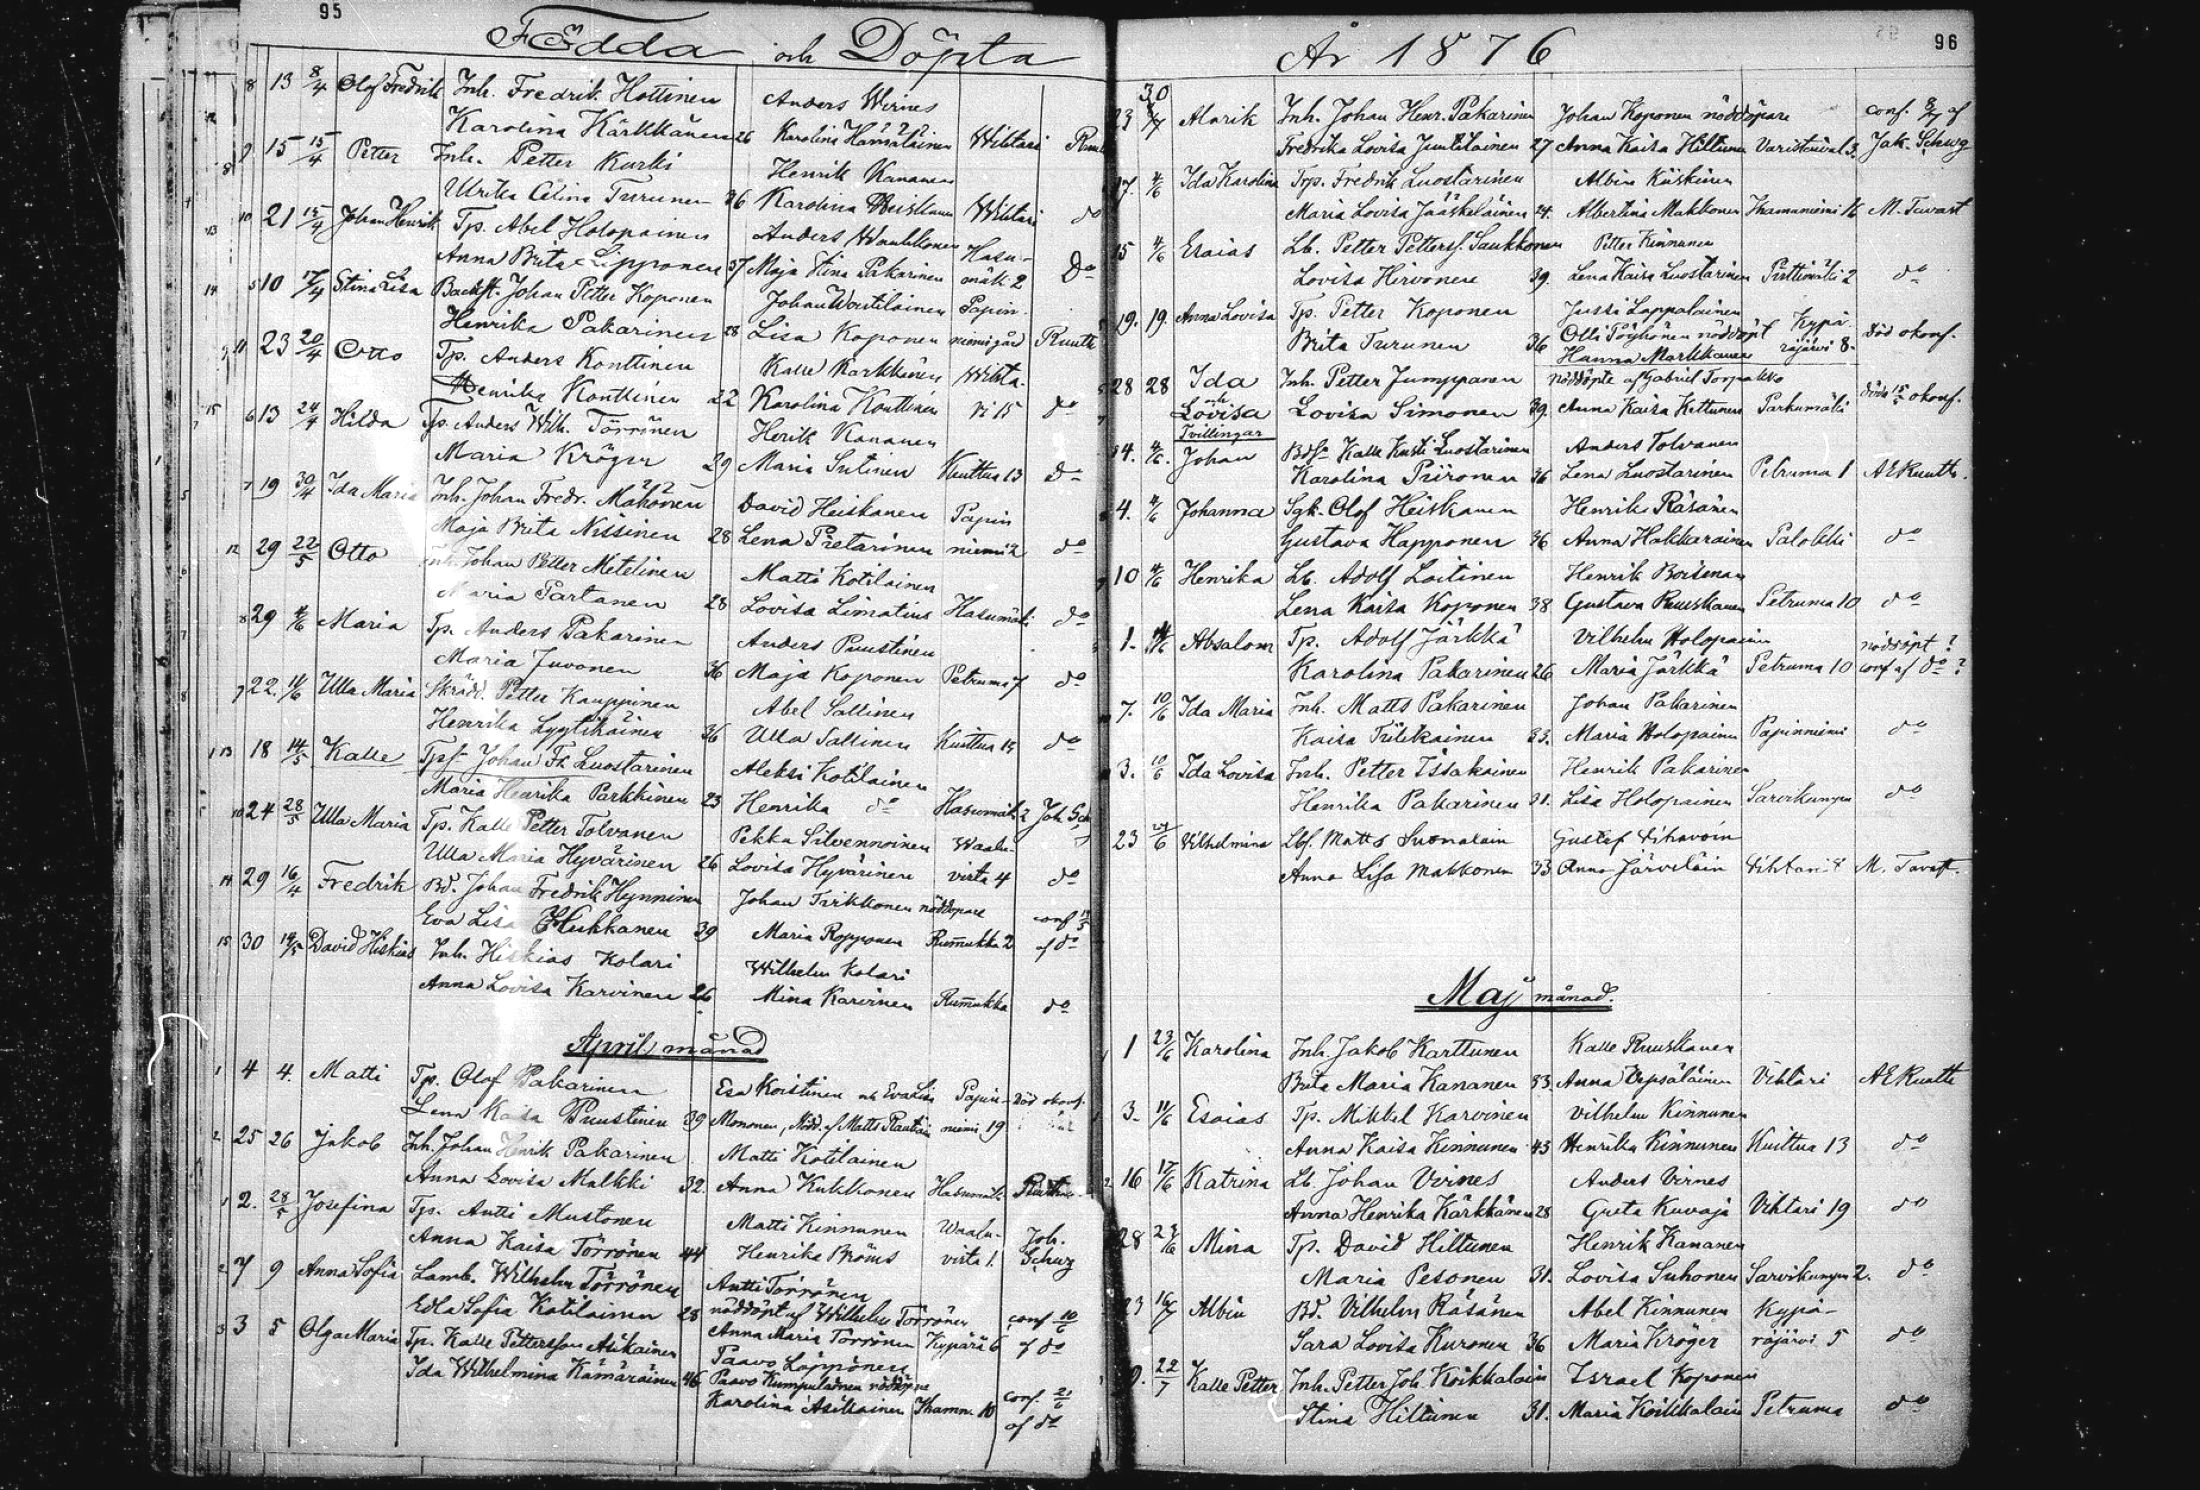 95
Födda och Döpta
8 13 8/4 Olof Fredrik Inh. Fredrik Hottinen Anders Wirnes
Karolina Kärkkänen 26 Karolina Hämäläinen Wihtari
9 15 15/4 Petter Inh. Petter Kurki Henrik Kananen
Ulrika Celina Turunen 36 Karolina Wihtari do
10 21 15/4 Johan Henrik Tp. Abel Holopainen Anders Hasu-
Anna Brita Lipponen 37 Maja Stina Pakarinen mäki 2 Do
5 10 17/4 Stina Lisa Backst. Johan Petter Koponen Johan Woutilainen Papin-
Henrika Pakarinen 28 Lisa Koponen niemi gård Ruuth
11 23 20/4 Otto Tp. Anders Konttinen Kalle Karkkinen Wihta-
Henrika Konttinen 22 Karolina Konttinen ri 15 do
6 13 24/4 Hilda Tp. Anders Wilh. Törrönen Herik Kananen
Maria Kröger 29 Maria Sutinen Kuittua 13 do
7 19 30/4 Ida Maria Inh. Johan Fredr. Mähönen David Heiskanen Papin
Maja Brita Nissinen 28 Lena Pietarinen niemi 2 do
12 29 22/5 Otto Inh. Johan Petter Metelinen Matti Kotilainen
Maria Partanen 28 Lovisa Limatius Hasumäki do
8 29 4/6 Maria Tp. Anders Pakarinen Anders Puustinen
Maria Juvonen 36 Maja Koponen Petruma 7 do
9 22. 11/6 Ulla Maria Skrädd. Petter Kauppinen Abel Sallinen
Henrika Lyytikäinen 36 Ulla Sallinen Kuittua 14 do
13 18 14/5 Kalle Tpf. Johan Fr. Luostarinen Aleksi Kotilainen
Maria Henrika Parkkinen 23 Henrika do Hasumäki 2 Joh. Sch
10 24 28/5 Ulla Maria Tp. Kalle Petter Tolvanen Pekka Silvennoinen Waalu-
Ulla Maria Hyvärinen 26 Lovisa Hyvärinen virta 4 do
14 29 16/4 Fredrik Bd. Johan Fredrik Hynninen Johan Tirkkonen nöddöpare conf 14/5
Eva Lisa 39 Maria Ropponen Rummukka 2 af do
15 30 14/5 David Hiskias Inh. Hiskias Kolari Wilhelm Kolari
Anna Lovisa Karvinen 26 Mina Karvinen Rummukka do
April månad
1 4 4. Matti Tp. Olof Pakarinen Esa Koistinen och Eva Lisa Papin- död okonf.
Lena Kaisa Puustinen 39 Mononen, Nöd. af Matts niemi 19
2 25 26 Jakob Inh. Johan Henrik Pakarinen Matti Kotilainen
Anna Lovisa Malkki 32. Anna Kukkonen Hasumäki
1 2. 28/5 Josefina Tp. Antti Mustonen Matti Kinnunen Waalu- Joh.
Anna Kaisa Törrönen 44 Henrika Broms virta 1. Schwg
2 7 9 Anna Sofia Lamb. Wilhelm Törrönen Antti Törrönen
Edla Sofia Kotilainen 28 nöddöpt af Wilhelm Törrönen conf 10/6
3 3 5 Olga Maria Tp. Kalle Pettersson Asikainen Anna Maria Törrönen Kypärä 6 af do
Ida Wilhelmina Kämäräinen 46 Paavo Läppönen
Paavo Kumpulainen nöddöpare conf. 21/6
Karolina Asikainen Ihamn. 10 af do
År 1876
96
30
23 8/7 Alarik Inh. Johan Henr. Pakarinen Johan Koponen nöddöpare conf. 8/7 af
Fredrika Lovisa Juutilainen 27 Anna Kaisa Hiltunen Varistaival 3. Jak. Schwg
17. 4/6 Ida Karolina Trp. Fredrik Luostarinen Albin Kiiskinen
Maria Lovisa Jääskeläinen 24. Albertina Makkonen Ihamaniemi 16 M. Tavast
15 4/6 Esaias Lb. Petter Petterss. Saukkonen Petter Kinnunen
Lovisa Hirvonen 39. Lena Kaisa Luostarinen Pirttimäki 2 do
19. 19. Anna Lovisa Tp. Petter Koponen Jussi Lappalainen Kypä
Brita Turunen 36 Olli Pöyhönen nöddöpt räjärvi 8. död okonf.
Hanna Markkanen
28 28 Ida Inh. Petter Jumppanen nöddöpte af Gabriel Torpakko
och Lovisa Lovisa Simonen 39. Anna Kaisa Kettunen Parkumäki döda 15/5 okonf.
Tvillingar
14. 4/6. Johan Bdfr. Kalle Kusti Luostarinen Anders Tolvanen
Karolina Piironen 36 Lena Luostarinen Petruma 1 AERuuth.
4. 4/6 Johanna Sgk. Olof Heiskanen Henrik Räsänen
Gustava Happonen 36 Anna Hakkarainen Palokki do
10 4/6 Henrika Lb. Adolf Laitinen Henrik Boisman
Lena Kaisa Koponen 38 Gustava Ruuskanen Petruma 10 do
1. 14/6 Absalom Tp. Adolf Järkkä Vilhelm Holopainen nöddöpt?
Karolina Pakarinen 26 Maria Järkkä Petruma 10 conf af do?
7. 10/6 Ida Maria Inh. Matts Pakarinen Johan Pakarinen
Kaisa Tiilikainen 33. Maria Holopainen Papinniemi do
3. 10/6 Ida Lovisa Inh. Petter Issakainen Henrik Pakarinen
Henrika Pakarinen 31. Lisa Holopainen Sarvikumpu do
23 24/6 Vilhelmina Lbf. Matts Suonalain Gustaf Vihavain
Anna Lisa Makkonen 33 Anna Järveläin Vihtari 8 M. Tavast.
Maj månad.
1 23/6 Karolina Inh. Jakob Karttunen Kalle Ruuskanen
Brita Maria Kananen 33. Anna Vepsäläinen Vihtari AERuuth
3. 11/6 Esaias Tp. Mikkel Karvinen Vilhelm Kinnunen
Anna Kaisa Kinnunen 43 Henrika Kinnunen Kuittua 13 do
2. 16 17/6 Katrina Lb. Johan Virnes Anders Virnes
Anna Henrika Kärkkänen 28 Greta Kuvaja Vihtari 19 do
28 24/6 Mina Tp. David Hiltunen Henrik Kananen
Maria Pesonen 31. Lovisa Suhonen Sarvikumpu 2. do
23 16/7 Albin Bd. Vilhelm Räsänen Abel Kinnunen Kypä-
Sara Lovisa Kuronen 36 Maria Kröger räjärvi 5 do
9. 22/7 Kalle Petter Inh. Petter Joh. Koikkalain Israel Koponen
Stina Hiltunen 31. Maria Koikkalain Petruma do